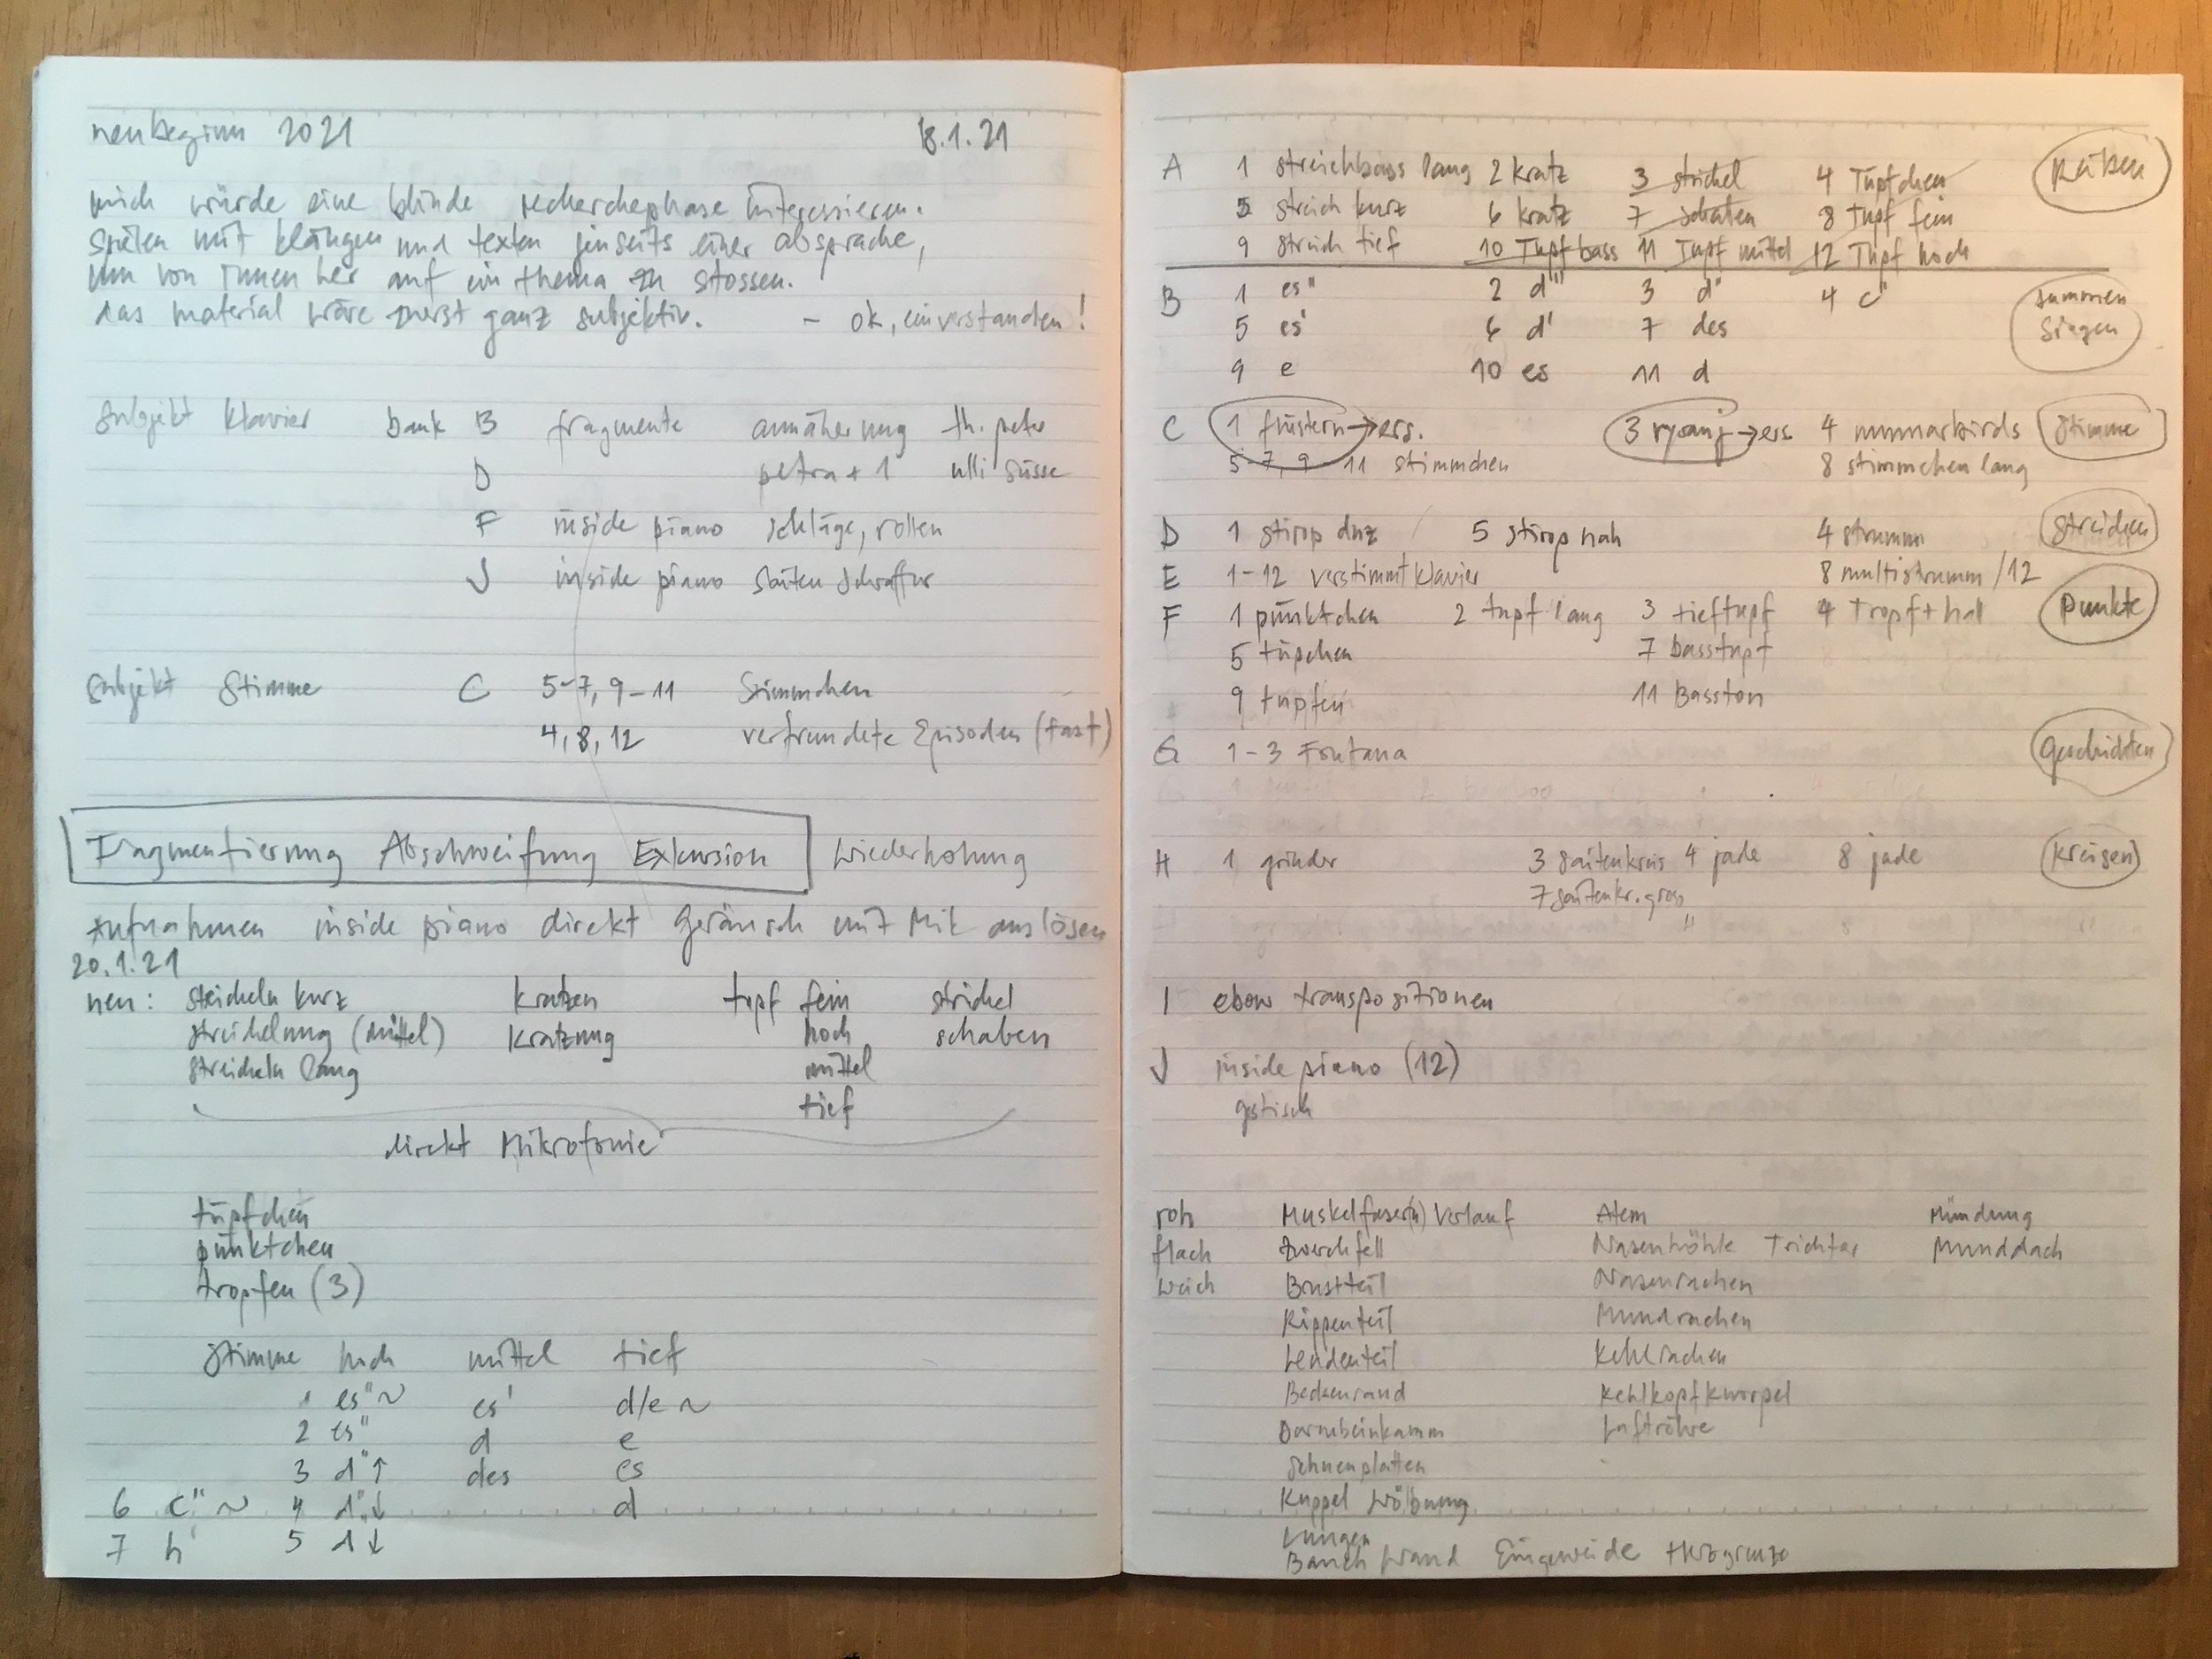 neubeginn 2021 18.1.21
mich würde eine blinde recherchephase interessieren.
spielen mit klängen und texten jenseits einer absprache,
um von innen her auf ein thema zu stossen.
das material wäre zuerst ganz subjektiv. – ok, einverstanden!
Subjekt Klavier bank B fragmente annäherung th. peter
D petra + 1 ulli süsse
F inside piano schläge, rollen
J inside piano Saiten Schraffur
Subjekt Stimme C 5–7, 9–11 Stimmchen
4, 8, 12 verfremdete Episoden (fast)
Fragmentierung Abschweifung Exkursion Wiederholung
Aufnahmen inside piano direkt Geräusch mit Mik auslösen
20.1.21
neu: streicheln kurz kratzen tupf fein strichel
streichelung (mittel) kratzung hoch schaben
streicheln lang mittel
tief
direkt Mikrofonie
tüpfchen
pünktchen
tropfen (3)
Stimme hoch mittel tief
1 es" ~ es' d/e ~
2 es" d e
3 d" ↑ des es
6 c" ~ 4 d" ↓ d
7 h' 5 d ↓
A 1 streichbass lang 2 kratz 3 strichel 4 Tüpfchen
5 streich kurz 6 kratz 7 schaben 8 tupf fein
9 streich tief 10 Tupf bass 11 Tupf mittel 12 Tupf hoch
B 1 es" 2 d''' 3 d" 4 c" summen
5 es' 6 d' 7 des singen
9 e 10 es 11 d
C 1 flüstern → ers. 3 → ers. 4 Stimme
5–7, 9–11 stimmchen 8 stimmchen lang
D 1 stirop dnz 5 stirop nah 4 strumm Streichen
E 1–12 verstimmt klavier 8 multistrumm /12
F 1 pünktchen 2 tupf lang 3 tieftupf 4 Tropf + hall Punkte
5 tüpchen 7 basstupf
9 tupfen 11 Basston
G 1–3 Fontana Geschichten
H 1 grinder 3 Saitenkreis 4 jade 8 jade Kreisen
7 Saitenkr. gross
"
I ebow transpositionen
J inside piano (12)
gestisch
roh Muskelfaser(n) Verlauf Atem Mündung
flach Zwerchfell Nasenhöhle Trichter Munddach
weich Brustteil Nasenrachen
Rippenteil Mundrachen
Lendenteil Kehlrachen
Beckenrand Kehlkopfknorpel
Darmbeinkamm Luftröhre
Sehnenplatten
Kuppel Wölbung
Lungen
Bauch Wand Eingeweide Herzgrenze